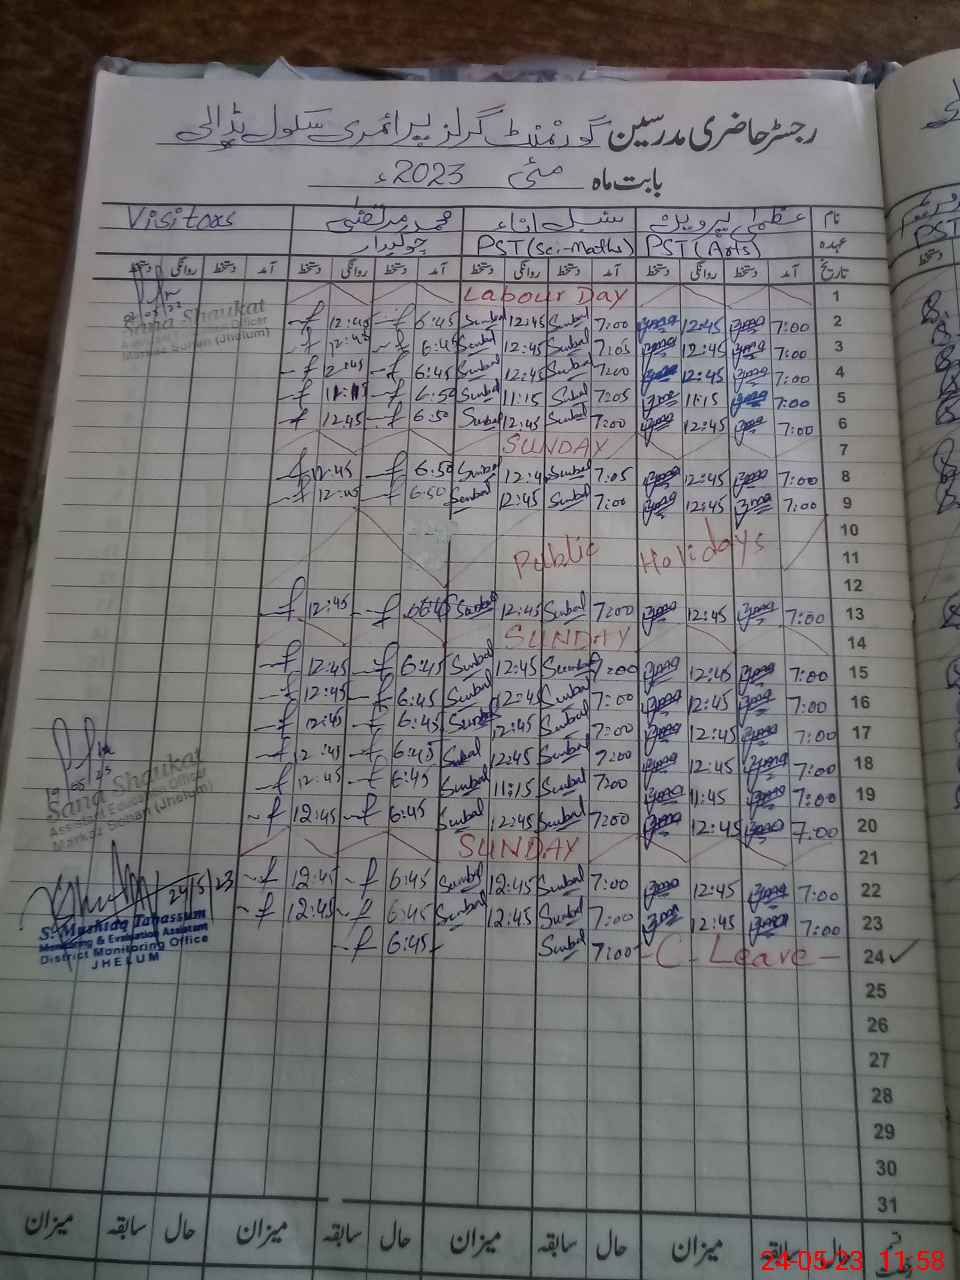 رجسٹر حاضری مدرسین گورنمنٹ گرلز پرائمری سکول
بابت ماہ مئی 2023ء
نام عظمیٰ پروین سنبل محمد مرتضیٰ Visitors
عہدہ PST (Arts) PST (Sci-Maths) چوکیدار
تاریخ آمد دستخط روانگی دستخط آمد دستخط روانگی دستخط آمد دستخط روانگی دستخط آمد دستخط روانگی دستخط
1 Labour Day
2 7:00 12:45 7:00 Sunbal 12:45 Sunbal 6:45 12:45
3 7:00 12:45 7:05 Sunbal 12:45 Sunbal 6:45 12:45
4 7:00 12:45 7:00 Sunbal 12:45 Sunbal 6:45 12:45
5 7:00 11:15 7:05 Sunbal 11:15 Sunbal 6:50
6 7:00 12:45 7:00 Sunbal 12:45 Sunbal 6:50 12:45
7 SUNDAY
8 7:00 12:45 7:05 Sunbal 12:4 Sunbal 6:50 12:45
9 7:00 12:45 7:00 Sunbal 12:45 Sunbal 6:50 12:45
10
11 Public Holidays
12
13 7:00 12:45 7:00 Sunbal 12:45 Sunbal 6:45 12:45
14 SUNDAY
15 7:00 12:45 7:00 Sunbal 12:45 Sunbal 6:45 12:45
16 7:00 12:45 7:00 Sunbal 12:45 Sunbal 6:45 12:45
17 7:00 12:45 7:00 Sunbal 12:45 Sunbal 6:45 12:45
18 7:00 12:45 7:00 Sunbal 12:45 Sunbal 6:45 12:45
19 7:00 11:45 7:00 Sunbal 11:15 Sunbal 6:45 12:45
20 7:00 12:45 7:00 Sunbal 12:45 Sunbal 6:45 12:45
21 SUNDAY
22 7:00 12:45 7:00 Sunbal 12:45 Sunbal 6:45 12:45
23 7:00 12:45 7:00 Sunbal 12:45 Sunbal 6:45 12:45
24 ✓ - C. Leave - 7:00 Sunbal 6:45
25
26
27
28
29
30
31
حال سابقہ میزان حال سابقہ میزان حال سابقہ میزان حال سابقہ میزان
Sana Shaukat
Assistant Education Officer
Markaz Sohan (Jhelum)
19 05 23
Sana Shaukat
Assistant Education Officer
Markaz Sohan (Jhelum)
24/5/23
S. Mushtaq Tabassum
Monitoring & Evaluation Assistant
District Monitoring Office
JHELUM
PST
24-05-23 11:58